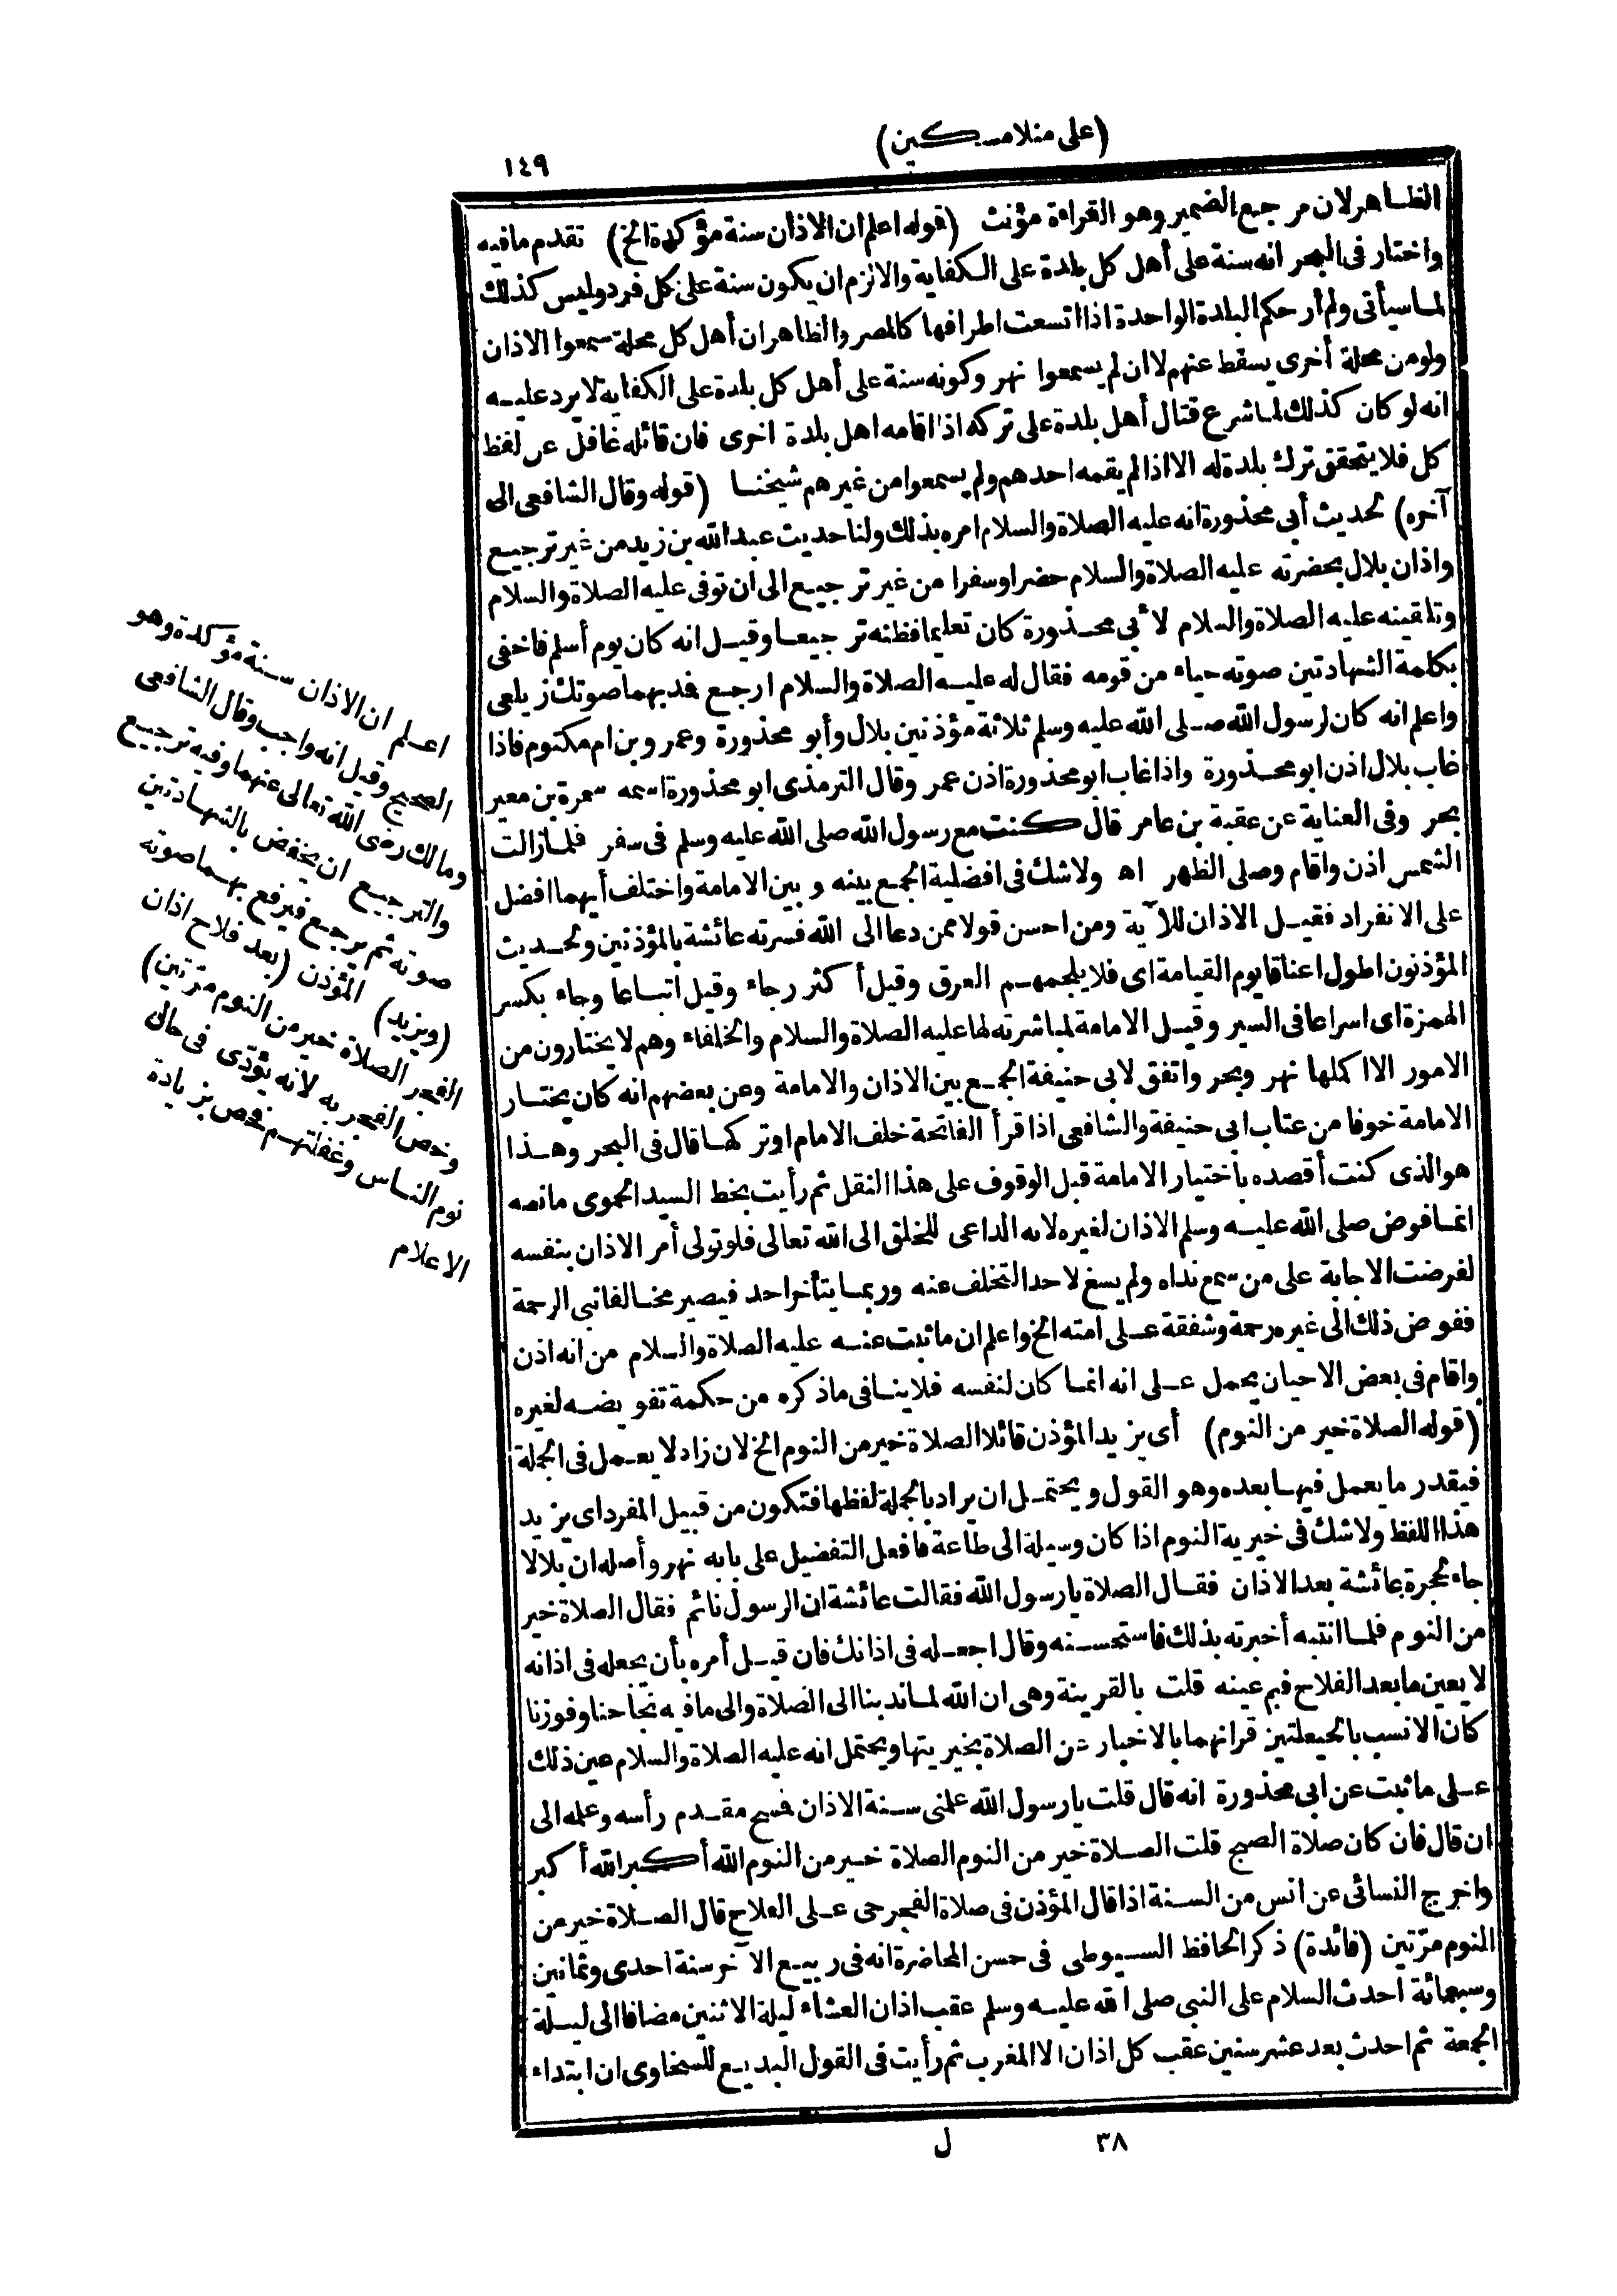 (على منلامسكين)
١٤٩
الظاهر لان مرجع الضمير وهو القراءة مؤنث (قوله اعلم ان الاذان سنة مؤكدة الخ) تقدم ما فيه
واختار فى البحر انه سنة على أهل كل بلدة على الكفاية والالزم ان يكون سنة على كل فرد وليس كذلك
لما سيأتى ولم أر حكم البلدة الواحدة اذا اتسعت اطرافها كالمصر والظاهر ان أهل كل محلة سمعوا الاذان
ولو من محلة أخرى يسقط عنهم لا ان لم يسمعوا نهر وكونه سنة على أهل كل بلدة على الكفاية لا يرد عليه
انه لو كان كذلك لما شرع قتال أهل بلدة على تركه اذا اقامه اهل بلدة اخرى فان قائله غافل عن لفظ
كل فلا يتحقق ترك بلدة له الا اذا لم يقمه احدهم ولم يسمعوا من غيرهم شيخنا (قوله وقال الشافعى الى
آخره) لحديث أبى محذورة انه عليه الصلاة والسلام امره بذلك ولنا حديث عبد الله بن زيد من غير ترجيع
واذان بلال بحضرته عليه الصلاة والسلام حضرا وسفرا من غير ترجيع الى ان توفى عليه الصلاة والسلام
وتلقينه عليه الصلاة والسلام لأبى محذورة كان تعليما فظنه ترجيعا وقيل انه كان يوم أسلم فاخفى
بكلمة الشهادتين صوته حياء من قومه فقال له عليه الصلاة والسلام ارجع فمد بهما صوتك زيلعى
واعلم انه كان لرسول الله صلى الله عليه وسلم ثلاثة مؤذنين بلال وأبو محذورة وعمرو بن ام مكتوم فاذا
غاب بلال اذن ابو محذورة واذا غاب ابو محذورة اذن عمر وقال الترمذى ابو محذورة اسمه سمرة بن معير
بحر وفى العناية عن عقبة بن عامر قال كنت مع رسول الله صلى الله عليه وسلم فى سفر فلما زالت
الشمس اذن واقام وصلى الظهر اه ولا شك فى افضلية الجمع بينه وبين الامامة واختلف أيهما افضل
على الانفراد فقيل الاذان للآية ومن احسن قولا ممن دعا الى الله فسرته عائشة بالمؤذنين ولحديث
المؤذنون اطول اعناقا يوم القيامة اى فلا يلجمهم العرق وقيل أكثر رجاء وقيل اتباعا وجاء بكسر
الهمزة اى اسراعا فى السير وقيل الامامة لمباشرته لها عليه الصلاة والسلام والخلفاء وهم لا يختارون من
الامور الا اكملها نهر وبحر واتفق لابى حنيفة الجمع بين الاذان والامامة وعن بعضهم انه كان يختار
الامامة خوفا من عتاب ابى حنيفة والشافعى اذا قرأ الفاتحة خلف الامام او تركها قال فى البحر وهذا
هو الذى كنت أقصده باختيار الامامة قبل الوقوف على هذا النقل ثم رأيت بخط السيد الحموى ما نصه
انما فوض صلى الله عليه وسلم الاذان لغيره لانه الداعى للخلق الى الله تعالى فلو تولى أمر الاذان بنفسه
لفرضت الاجابة على من سمع نداه ولم يسغ لاحد التخلف عنه وربما يتأخر احد فيصير مخالفا نبى الرحمة
ففوض ذلك الى غيره رحمة وشفقة على امته الخ واعلم ان ما ثبت عنه عليه الصلاة والسلام من انه اذن
واقام فى بعض الاحيان يحمل على انه انما كان لنفسه فلا ينافى ما ذكره من حكمة تفويضه لغيره
(قوله الصلاة خير من النوم) أى يزيد المؤذن قائلا الصلاة خير من النوم الخ لان زاد لا يعمل فى الجملة
فيقدر ما يعمل فيها بعده وهو القول ويحتمل ان يراد بالجملة لفظها فتكون من قبيل المفرد اى يزيد
هذا اللفظ ولا شك فى خيرية النوم اذا كان وسيلة الى طاعة فافعل التفضيل على بابه نهر وأصله ان بلالا
جاء لحجرة عائشة بعد الاذان فقال الصلاة يا رسول الله فقالت عائشة ان الرسول نائم فقال الصلاة خير
من النوم فلما انتبه أخبرته بذلك فاستحسنه وقال اجعله فى اذانك فان قيل أمره بأن يجعله فى اذانه
لا يعين ما بعد الفلاح فبم عينه قلت بالقرينة وهى ان الله لما ندبنا الى الصلاة والى ما فيه نجاحنا وفوزنا
كان الانسب بالحيعلتين قرانهما بالاخبار عن الصلاة بخيريتها ويحتمل انه عليه الصلاة والسلام عين ذلك
على ما ثبت عن ابى محذورة انه قال قلت يا رسول الله علمنى سنة الاذان فمسح مقدم رأسه وعلمه الى
ان قال فان كان صلاة الصبح قلت الصلاة خير من النوم الصلاة خير من النوم الله أكبر الله أكبر
واخرج النسائى عن انس من السنة اذا قال المؤذن فى صلاة الفجر حى على الفلاح قال الصلاة خير من
النوم مرّتين (فائدة) ذكر الحافظ السيوطى فى حسن المحاضرة انه فى ربيع الآخر سنة احدى وثمانين
وسبعمائة احدث السلام على النبى صلى الله عليه وسلم عقب اذان العشاء ليلة الاثنين مضافا الى ليلة
الجمعة ثم احدث بعد عشر سنين عقب كل اذان الا المغرب ثم رأيت فى القول البديع للسخاوى ان ابتداء
اعلم ان الاذان سنة مؤكدة وهو
الصحيح وقيل انه واجب وقال الشافعى
ومالك رضى الله تعالى عنهما وفيه ترجيع
والترجيع ان يخفض بالشهادتين
صوته ثم يرجع فيرفع بهما صوته
(ويزيد) المؤذن (بعد فلاح اذان
الفجر الصلاة خير من النوم مرّتين)
وخص الفجر به لانه يؤدّى فى حال
نوم الناس وغفلتهم فخص بزيادة
الاعلام
٣٨
ل